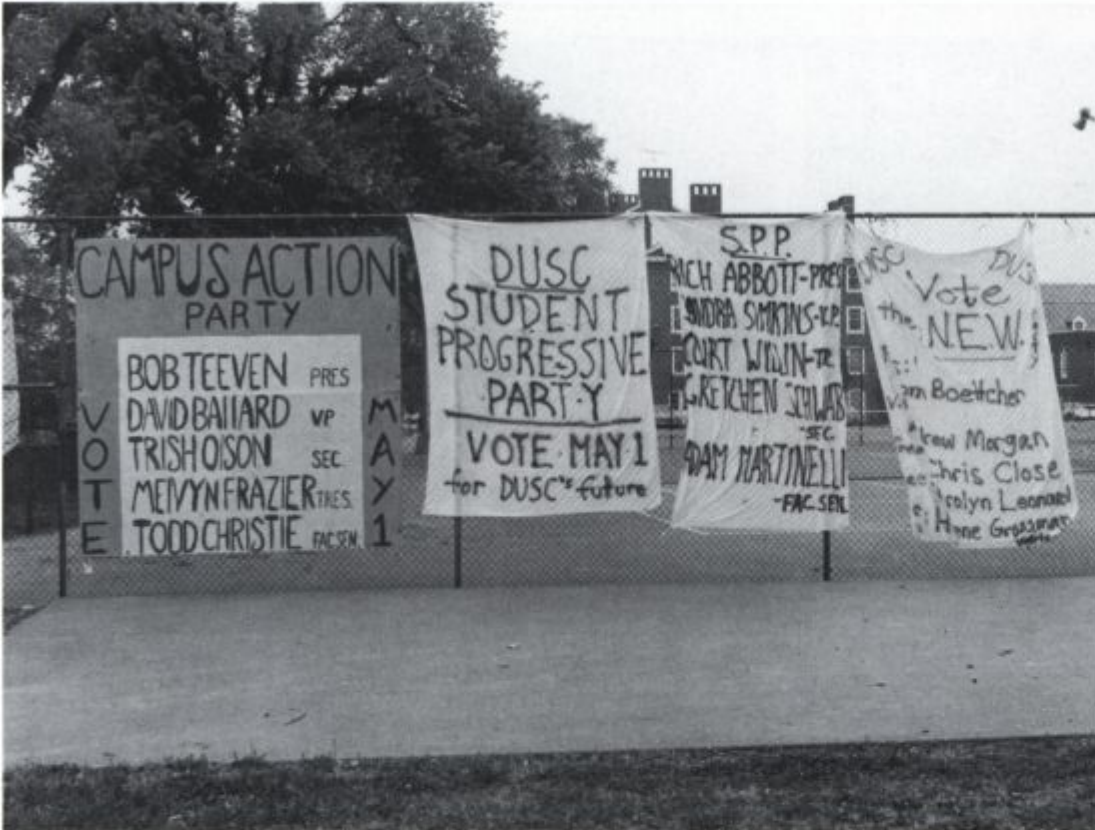 CAMPUS ACTION
PARTY
VOTE
BOB TEEVEN PRES
DAVID BALLARD VP
TRISH OLSON SEC
MELVYN FRAZIER TRES.
TODD CHRISTIE FAC SEN
MAY 1
DUSC
STUDENT
PROGRESSIVE
PARTY
VOTE MAY 1
for DUSC's future
S.P.P.
RICH ABBOTT-PRES
SIMKINS-V.P.
COURT WIDIN-TR
GRETCHEN SCHWAB
-SEC
ADAM MARTINELLI
-FAC SEN
DUSC
Vote
the
NEW.
Boettcher
Morgan
Chris Close
Leonard
Grossman